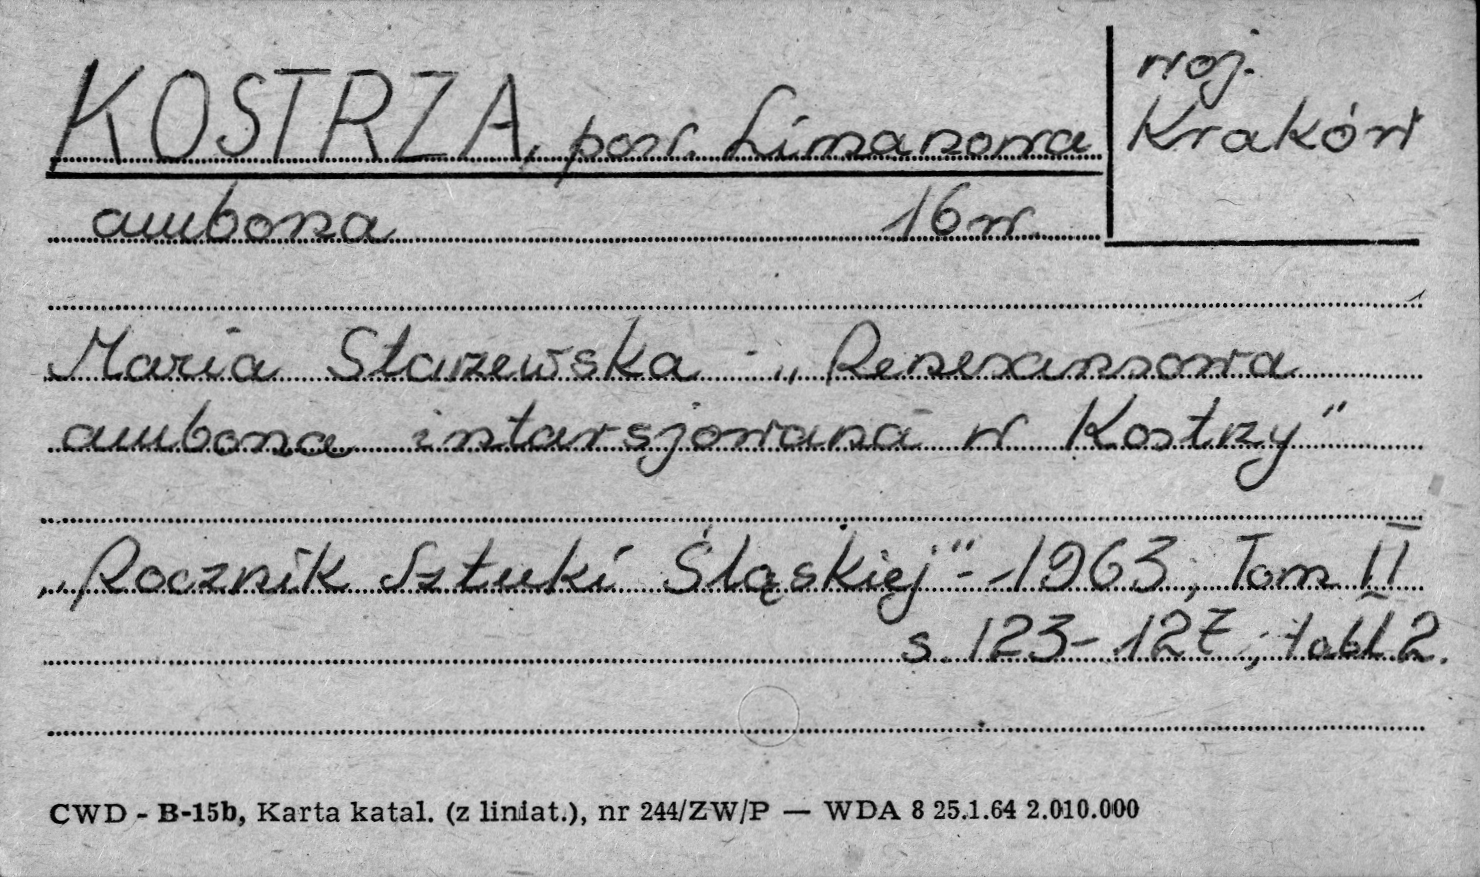 KOSTRZA, pow. Limanowa
woj.
Kraków
ambona 16 w.
Maria Starzewska - „Renesansowa
ambona intarsjowana w Kostrzy"
„Rocznik Sztuki Śląskiej" - 1963, Tom II
s. 123-127, tabl 2.
CWD - B-15b, Karta katal. (z liniat.), nr 244/ZW/P — WDA 8 25.1.64 2.010.000